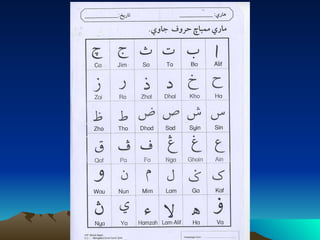 هاري: تاريخ:
ماري ممباچ حروف جاوي.
ا ب ت ث ج چ
Ca Jim Sa Ta Ba Alif
ح خ د ذ ر ز
Zai Ra Zhal Dhal Kho Ha
س ش ص ض ط ظ
Zho Tho Dhod Sad Syin Sin
ع غ ڠ ف ڤ ق
Qaf Pa Fa Nga Ghain Ain
ک ݢ ل م ن و
Wau Nun Mim Lam Ga Kaf
ۏ ه لا ء ي ڽ
Nya Ya Hamzah Lam-Alif Ha Va